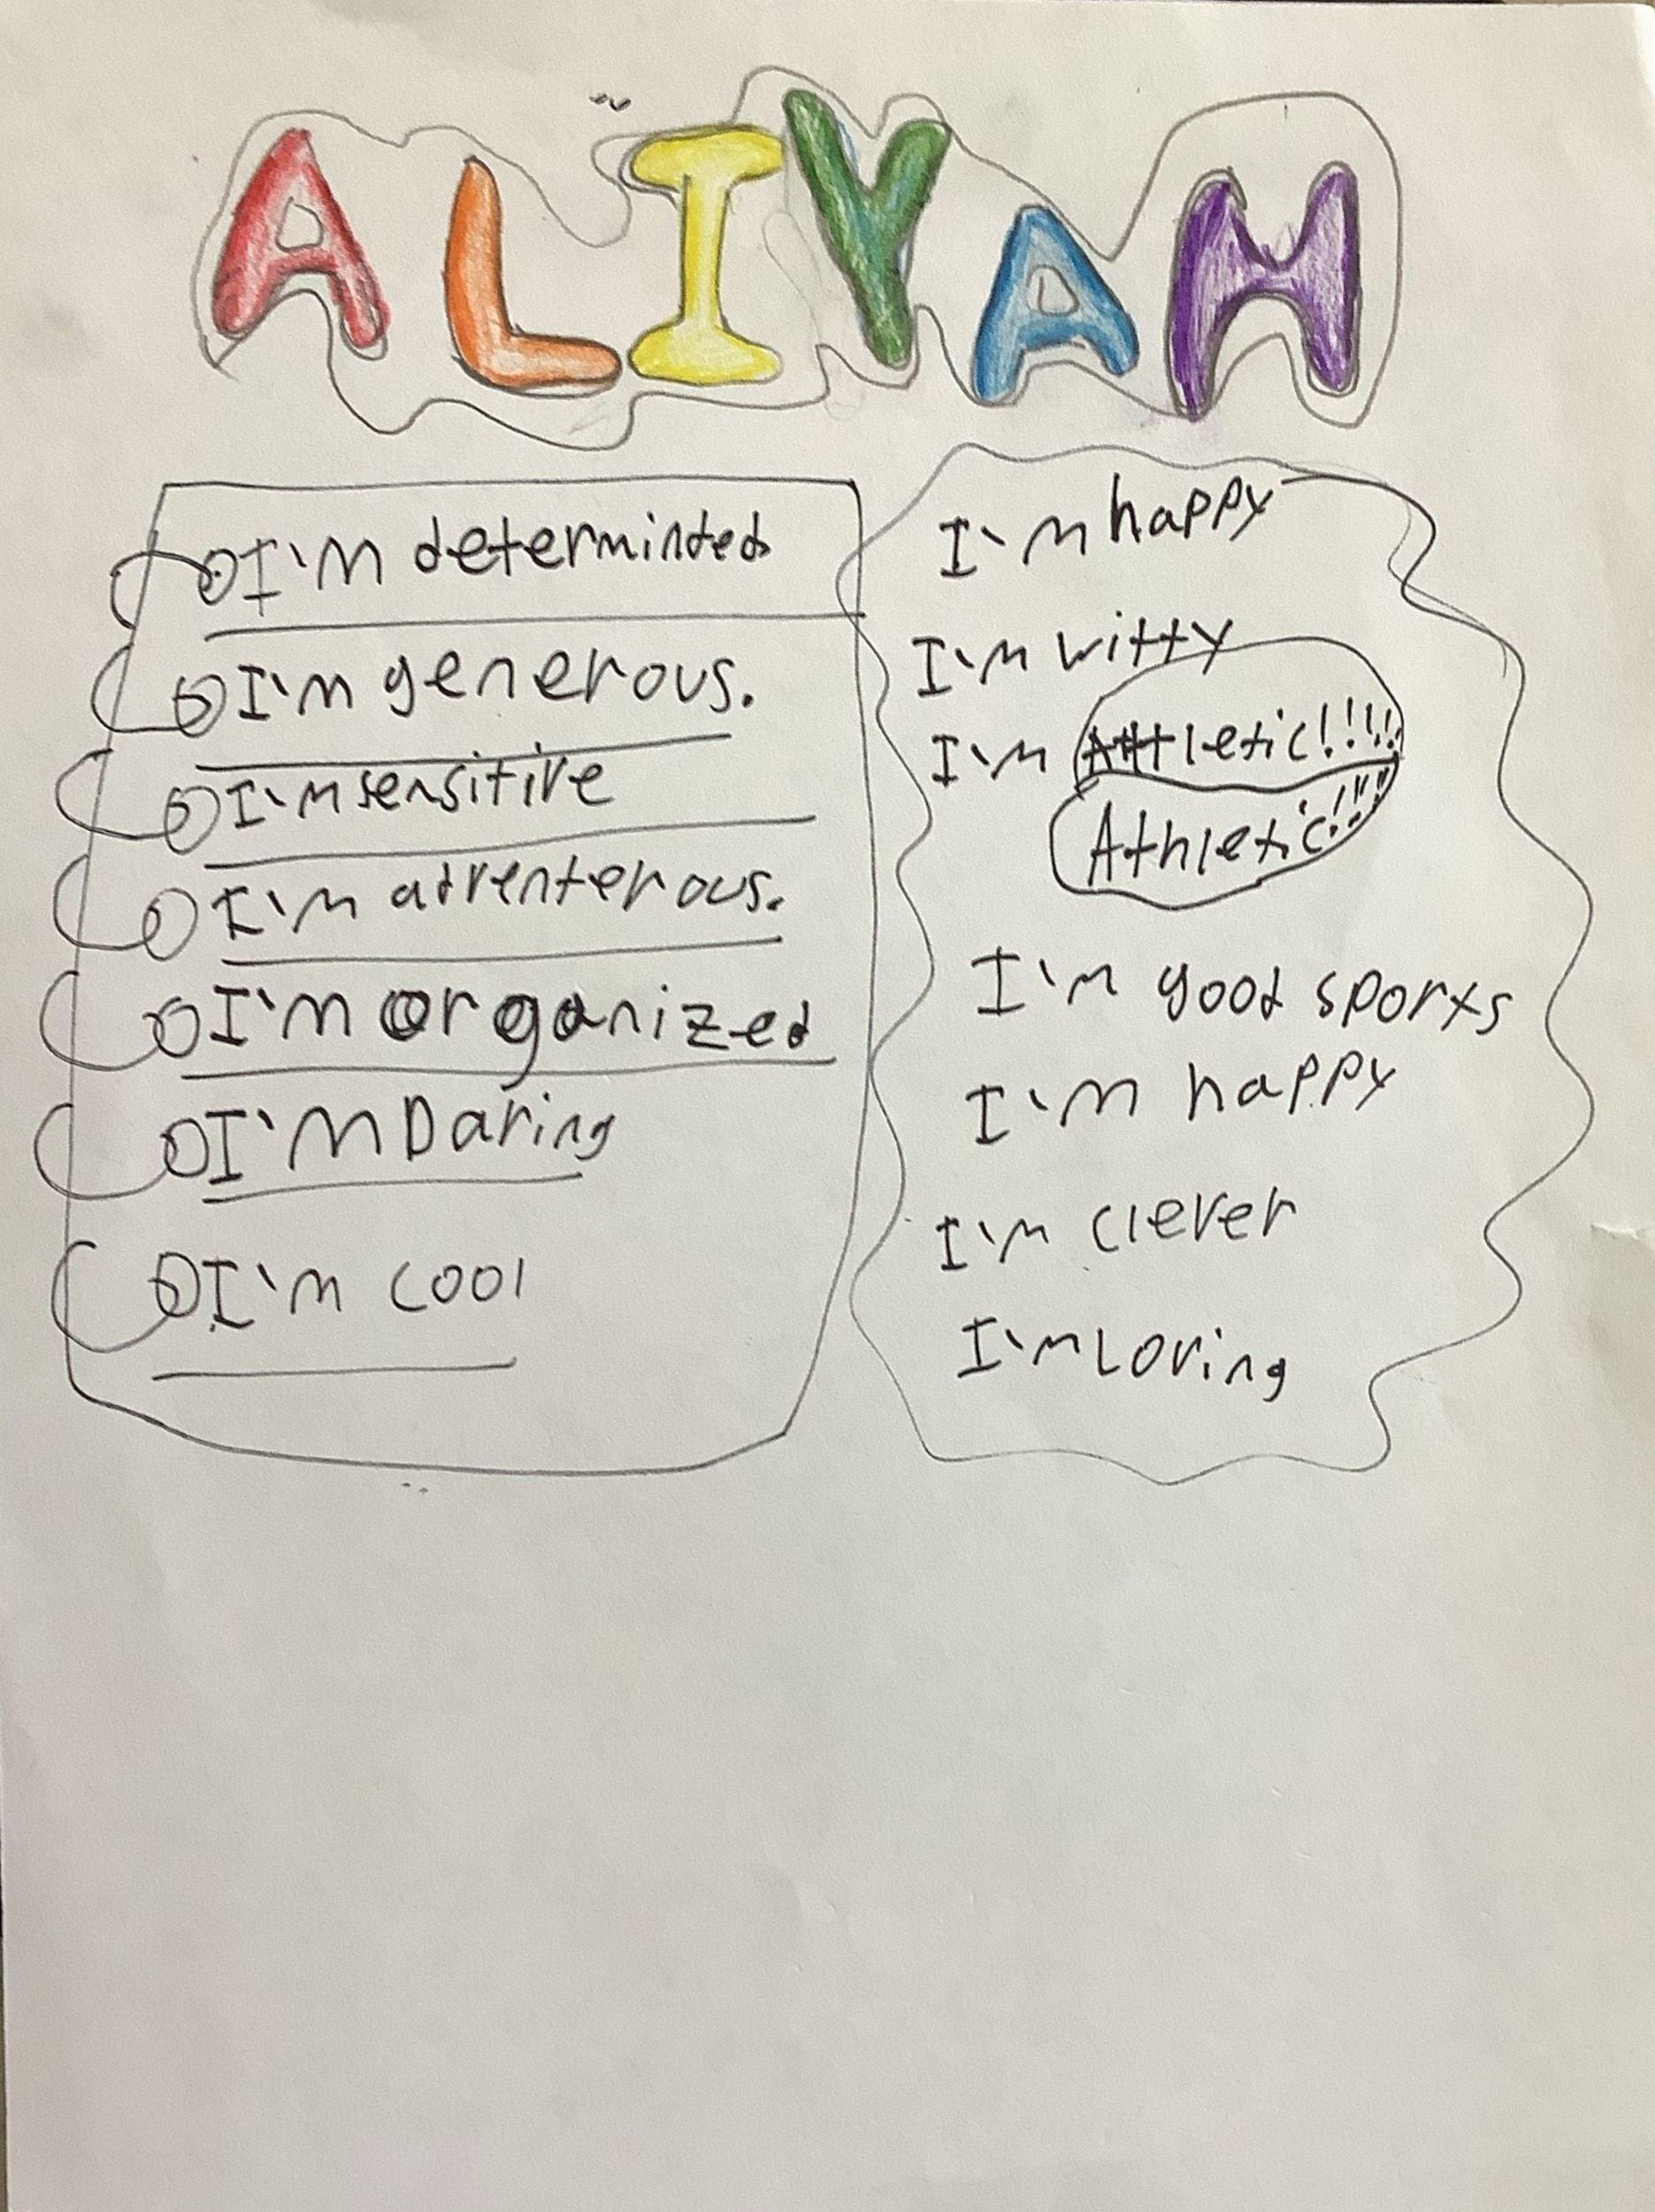 ALIYAH
I'm determinted
I'm generous.
I'm sensitive
I'm adventerous.
I'm organized
I'm Daring
I'm cool
I'm happy
I'm witty
I'm Athletic!!!!
Athletic!!!!
I'm good sports
I'm happy
I'm clever
I'm Loving